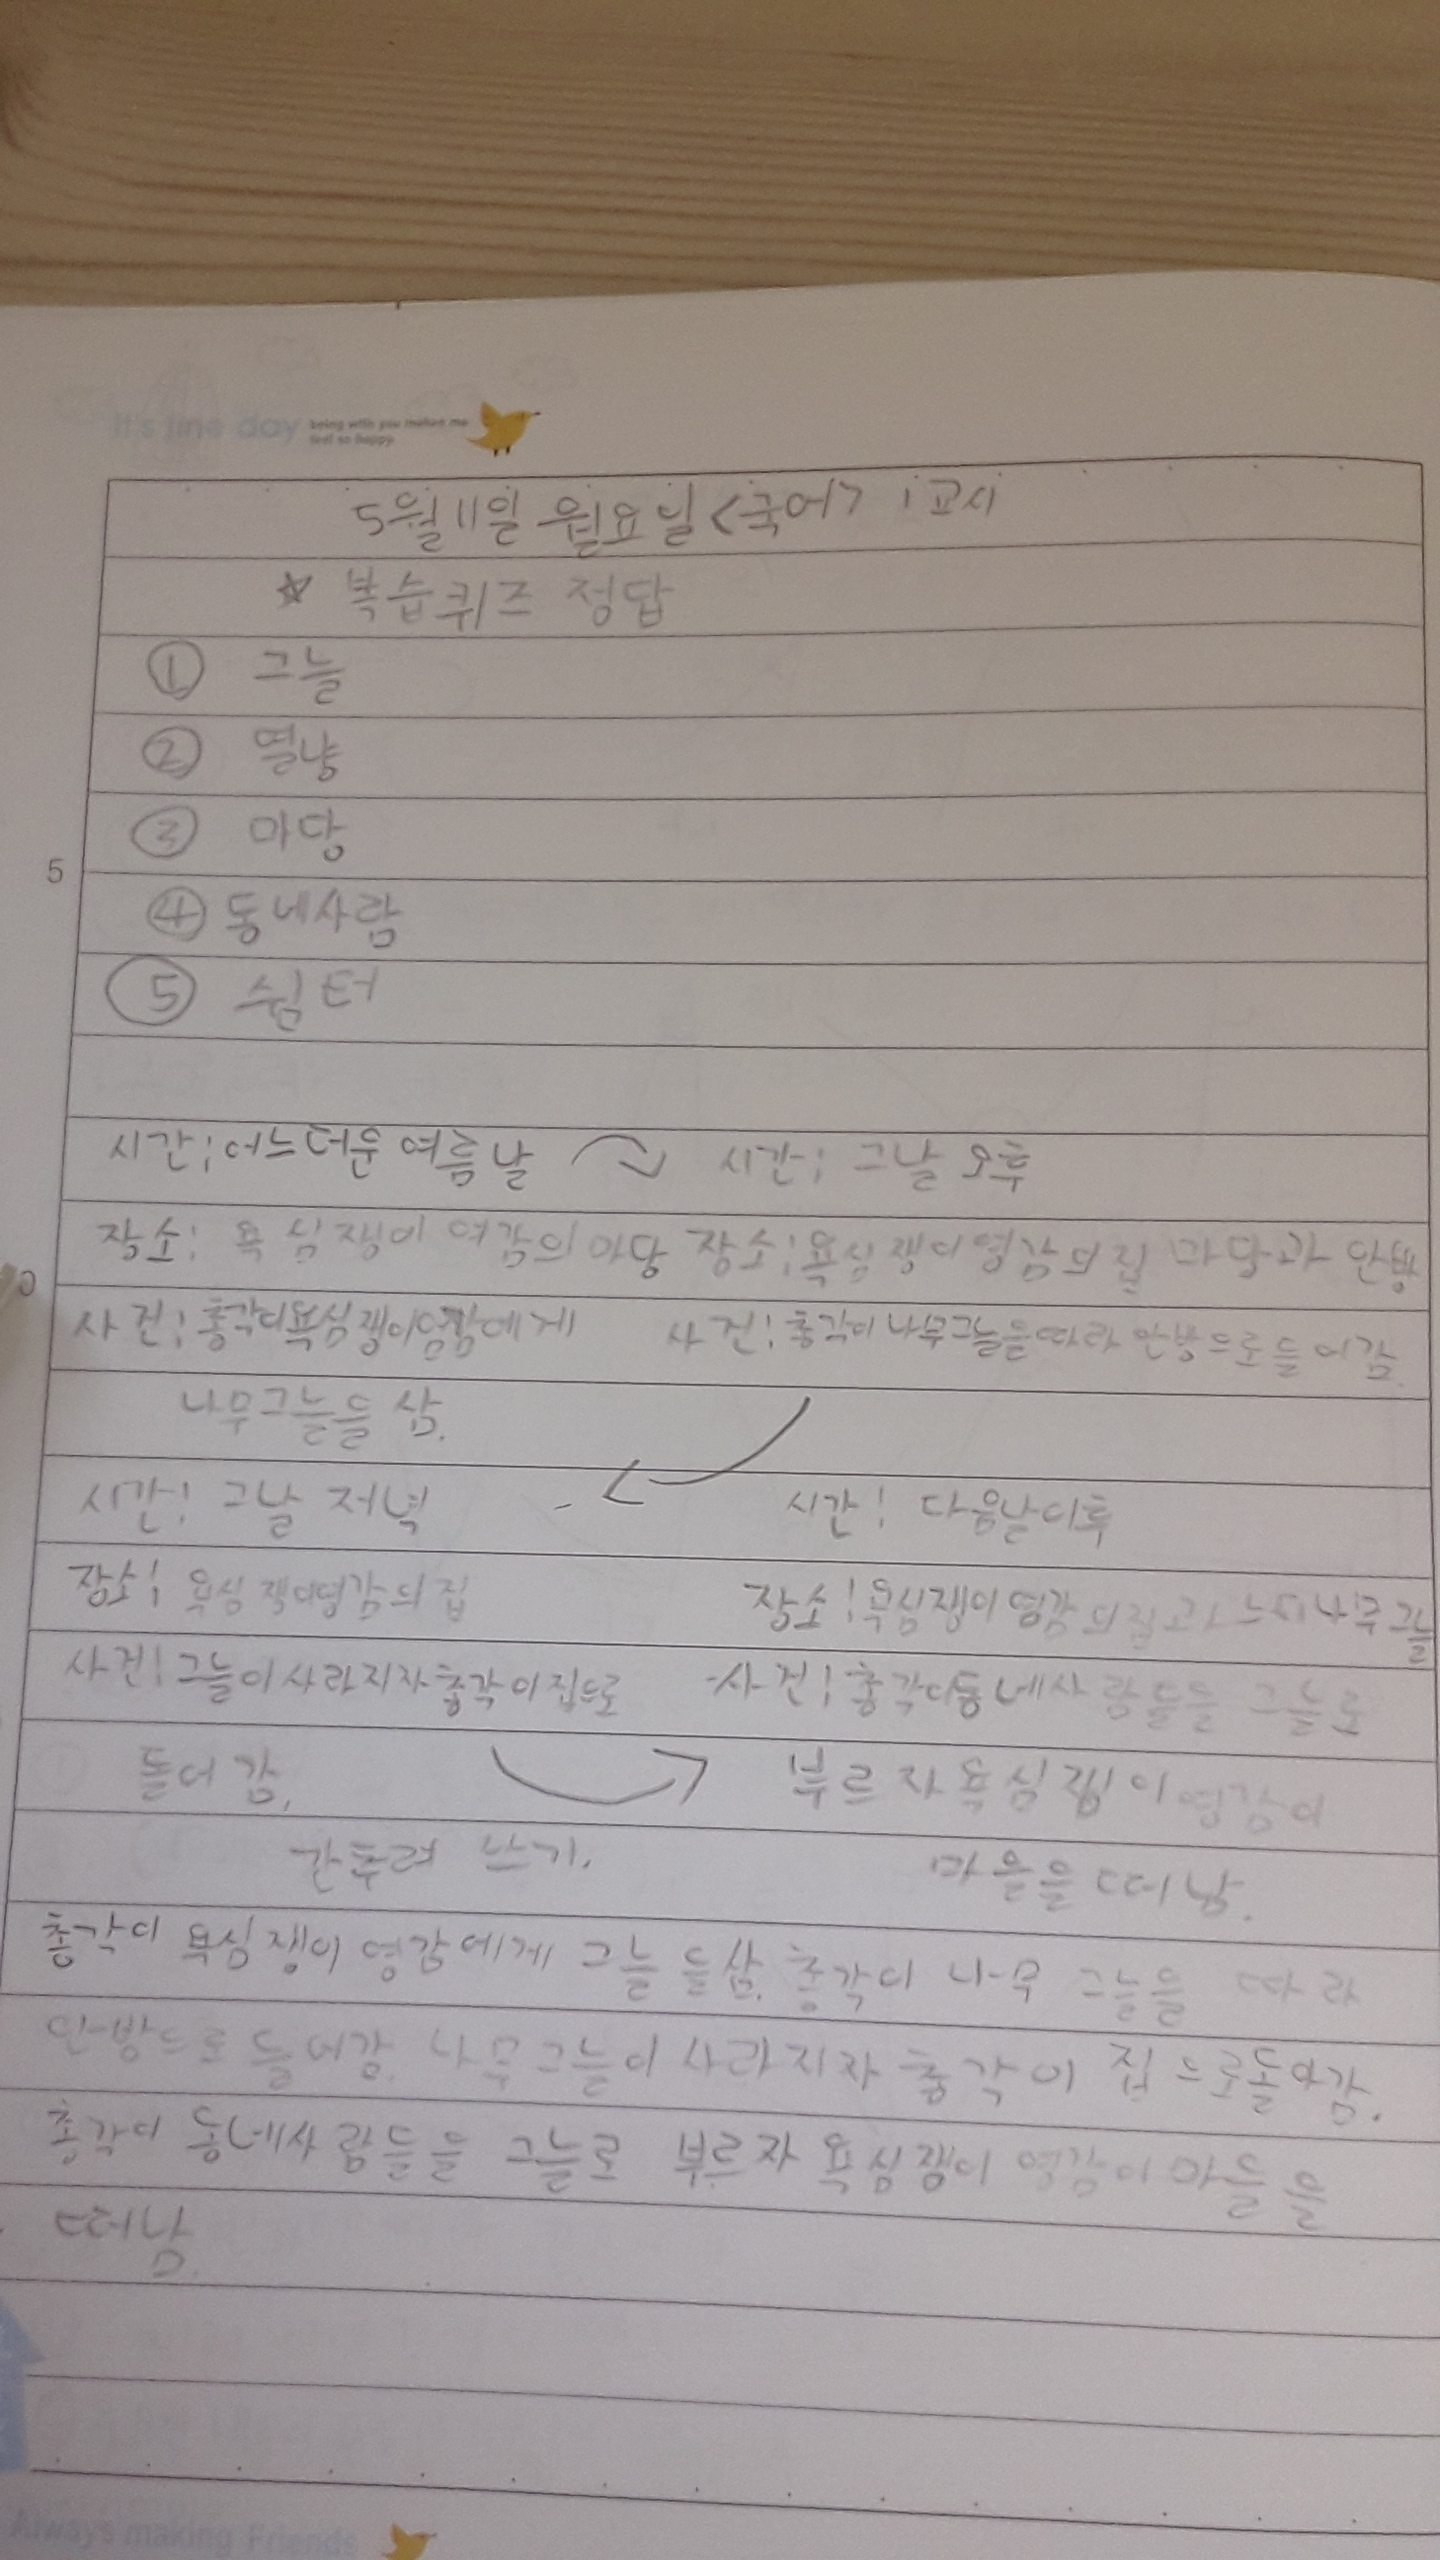 It's fine day being with you makes me
feel so happy
5월 11일 월요일 <국어> 1교시
☆ 복습퀴즈 정답
① 그늘
② 열냥
③ 마당
5
④ 동네사람
⑤ 쉼터
시간: 어느더운 여름날 시간: 그날 오후
장소: 욕심쟁이 영감의 마당 장소: 욕심쟁이영감의집 마당과 안방
0
사건: 총각이욕심쟁이영감에게 사건: 총각이 나무그늘을따라 안방으로들어감.
나무그늘을 삼.
시간: 그날 저녁 시간: 다음날이후
장소: 욕심쟁이영감의집 장소: 욕심쟁이 영감의집과 느티나무 그늘
사건: 그늘이사라지자총각이집으로 사건: 총각이동네사람들을 그늘로
돌아감. 부르자욕심쟁이영감이
간추려 쓰기. 마을을떠남.
총각이 욕심쟁이 영감에게 그늘을삼. 총각이 나무 그늘을 따라
안방으로 들어감. 나무그늘이 사라지자 총각이 집으로돌아감.
총각이 동네사람들을 그늘로 부르자 욕심쟁이 영감이 마을을
떠남.
Always making Friends